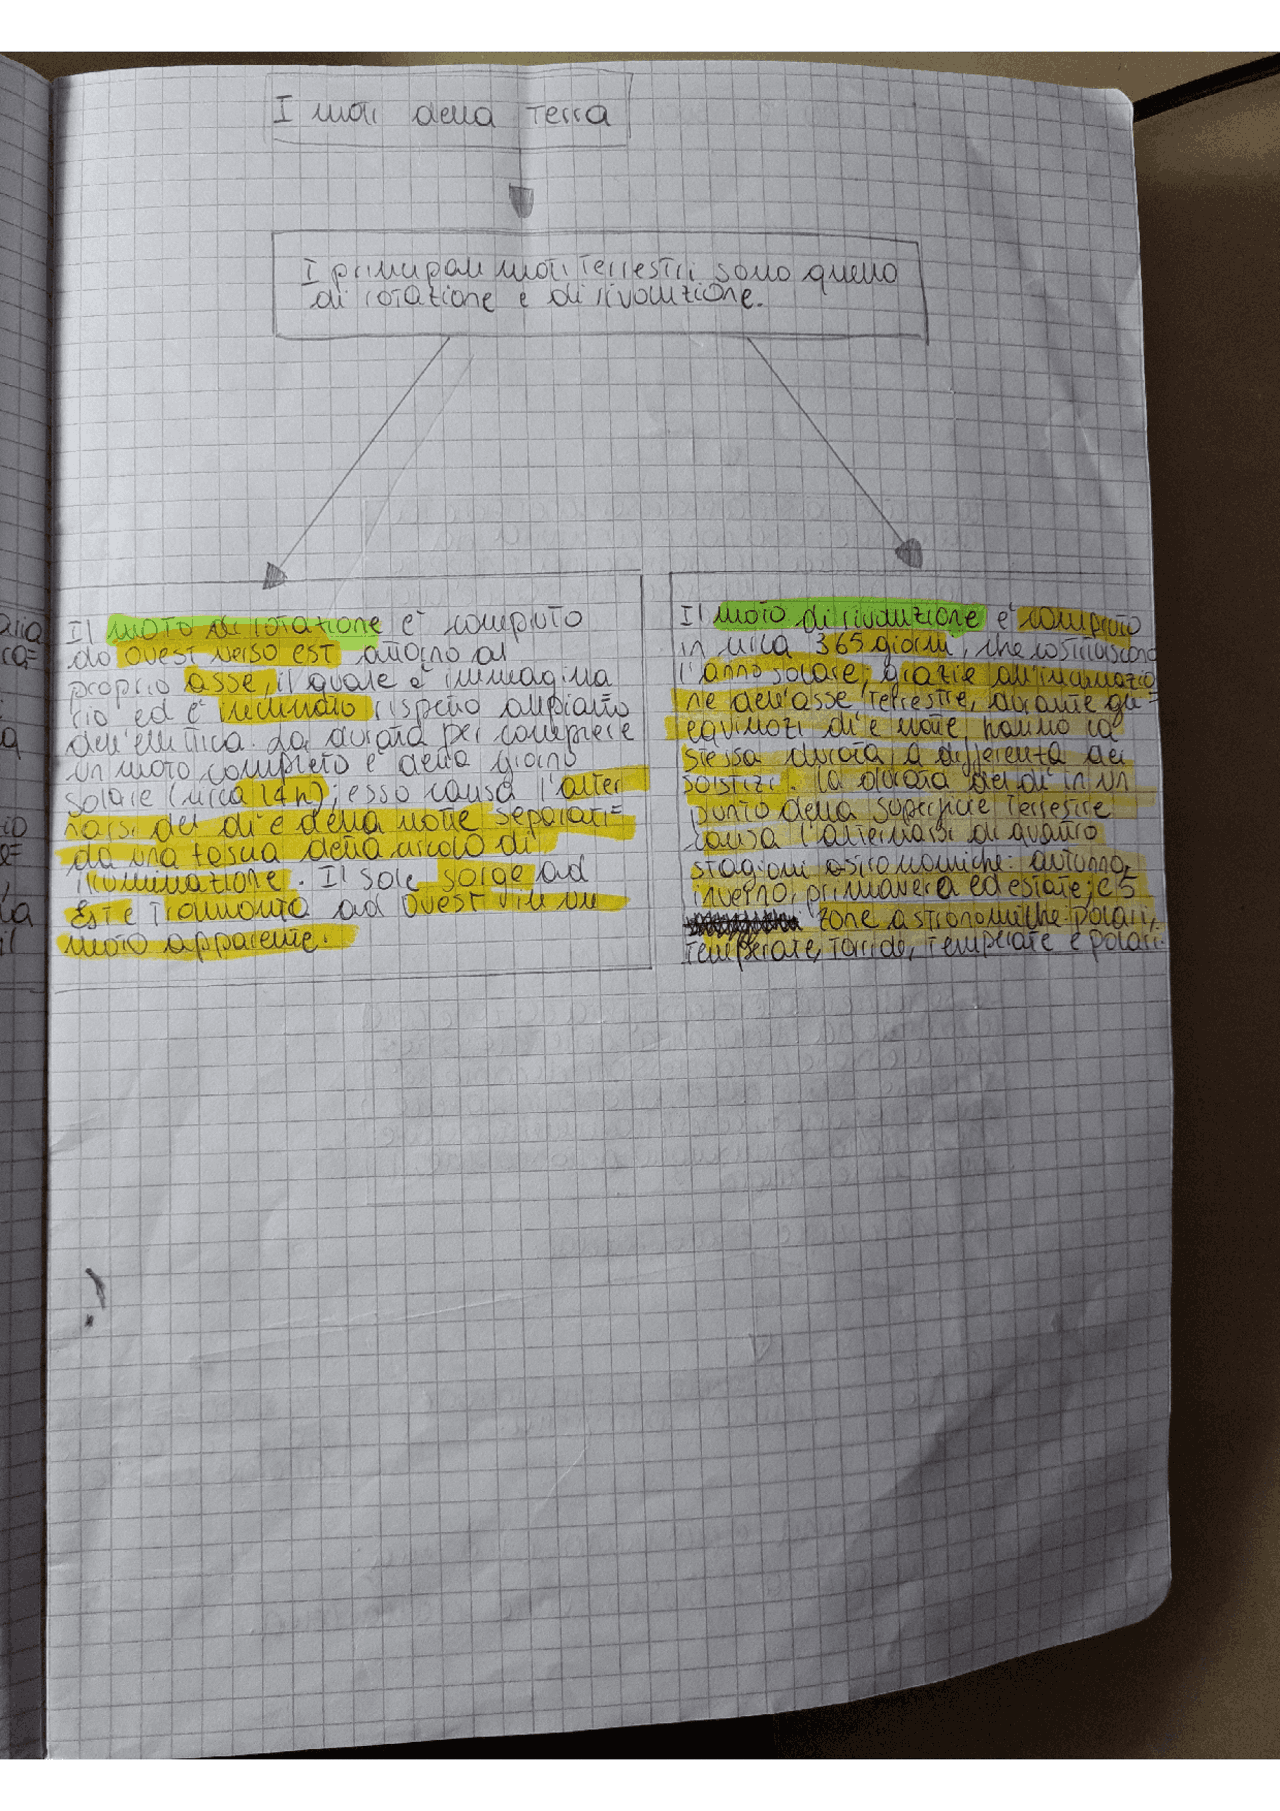 I moti della Terra
I principali moti Terrestri sono quello
di rotazione e di rivoluzione.
Il moto di rotazione è compiuto
da ovest verso est attorno al
proprio asse, il quale è immagina
rio ed è inclinato rispetto al piano
dell'ellittica. La durata per compiere
un moto completo è della giorno
solare (circa 24h); esso causa l'alter
narsi del dì e della notte separati=
da una fascia della circolo di
illuminazione. Il sole sorge ad
Est e tramonta ad Ovest
moto apparente.
Il moto di rivoluzione è compiuto
in circa 365 giorni, che costituiscono
l'anno solare; grazie all'inclinazio
ne dell'asse Terrestre, durante gli=
equinozi dì e notte hanno la
stessa durata, a differenza dei
solstizi. La durata del dì in un
punto della superficie Terrestre
causa l'alternarsi di quattro
stagioni astronomiche: autunno,
inverno, primavera ed estate; e 5
zone astronomiche: polari,
Temperate, Torride, Temperate e polari.